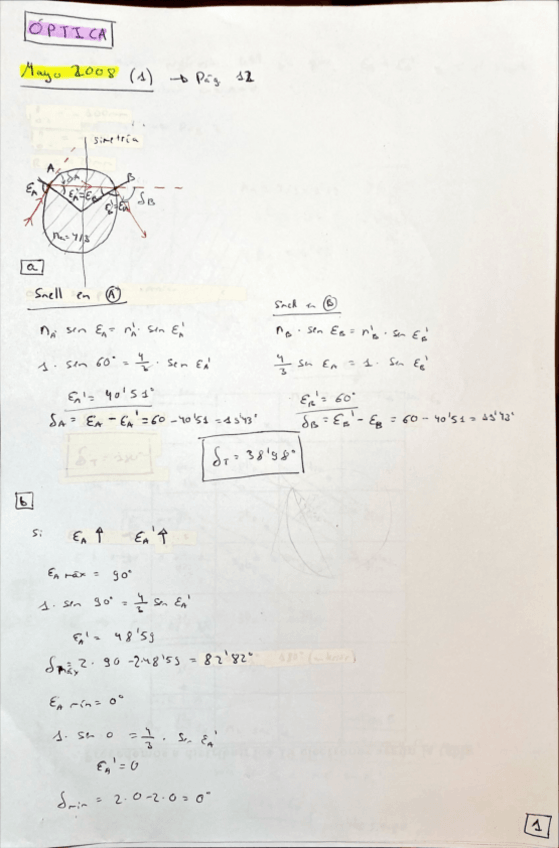 ÓPTICA
Mayo 2008 (1) → Pág 12
simetría
A
B
δA
εA
εA'=εB
δB
n=4/3
a
Snell en Ⓐ
nA sen εA = nA' · sen εA'
1 · sen 60° = 4/3 · sen εA'
εA' = 40'51°
δA = εA - εA' = 60 - 40'51 = 19'49°
Snell en Ⓑ
nB · sen εB = nB' · sen εB'
4/3 sen εA = 1 · sen εB'
εB' = 60°
δB = εB' - εB = 60 - 40'51 = 19'49°
δT = 38'98°
b
Si εA ↑ εA' ↑
εA máx = 90°
1 · sen 90° = 4/3 sen εA'
εA' = 48'59
δmáx = 2 · 90 - 2·48'59 = 82'82°
εA mín = 0°
1 · sen 0 = 4/3 · sen εA'
εA' = 0
δmin = 2·0 - 2·0 = 0°
1